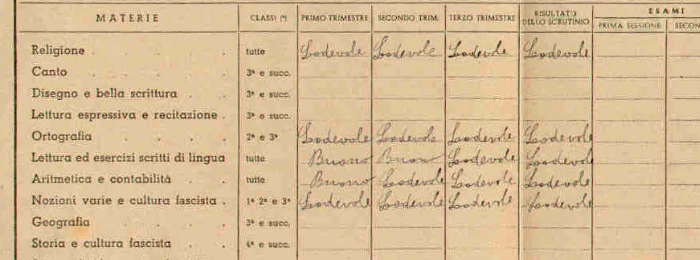 MATERIE CLASSI (*) PRIMO TRIMESTRE SECONDO TRIM. TERZO TRIMESTRE RISULTATO DELLO SCRUTINIO ESAMI PRIMA SESSIONE SECON
Religione . . . . . tutte Lodevole Lodevole Lodevole Lodevole
Canto . . . . . . 3ª e succ.
Disegno e bella scrittura . . . 3ª e succ.
Lettura espressiva e recitazione . 3ª e succ.
Ortografia . . . . . 2ª e 3ª Lodevole Lodevole Lodevole Lodevole
Lettura ed esercizi scritti di lingua tutte Buono Buono Lodevole Lodevole
Aritmetica e contabilità . . . tutte Buono Lodevole Lodevole Lodevole
Nozioni varie e cultura fascista . 1ª 2ª e 3ª Lodevole Lodevole Lodevole Lodevole
Geografia . . . . . 3ª e succ.
Storia e cultura fascista . . 4ª e succ.